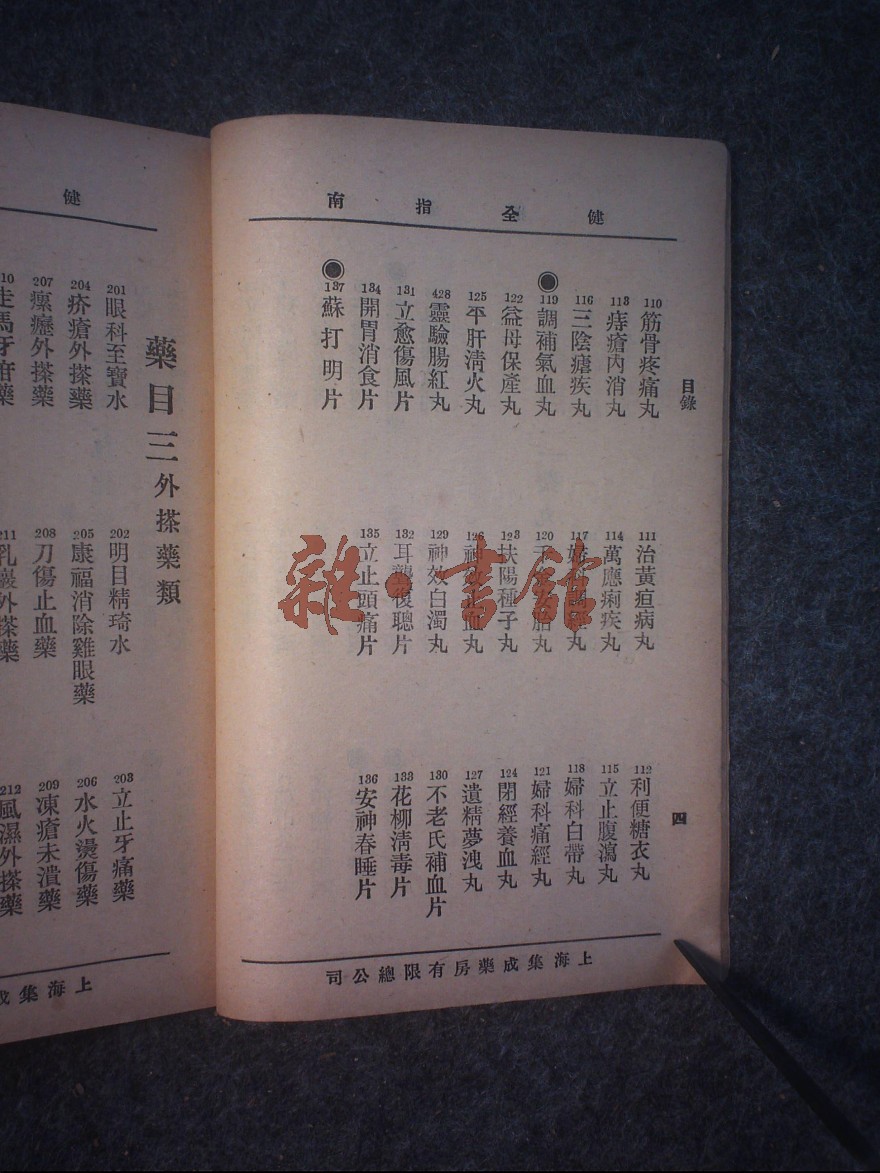 健全指南
目錄
四
110 筋骨疼痛丸
111 治黃疸病丸
112 利便糖衣丸
113 痔瘡內消丸
114 萬應痢疾丸
115 立止腹瀉丸
116 三陰瘧疾丸
117
118 婦科白帶丸
119 調補氣血丸
120
121 婦科痛經丸
122 益母保產丸
123 扶陽種子丸
124 閉經養血丸
125 平肝清火丸
126 神效止血丸
127 遺精夢洩丸
428 靈驗腸紅丸
129 神效白濁丸
130 不老氏補血片
131 立愈傷風片
132 耳聾復聰片
133 花柳清毒片
134 開胃消食片
135 立止頭痛片
136 安神春睡片
137 蘇打明片
上海集成藥房有限總公司
健
藥目三 外搽藥類
201 眼科至寶水
202 明目精琦水
203 立止牙痛藥
204 疥瘡外搽藥
205 康福消除雞眼藥
206 水火燙傷藥
207 瘰癧外搽藥
208 刀傷止血藥
209 凍瘡未潰藥
10 走馬牙疳藥
211 乳巖外搽藥
212 風濕外搽藥
上海集成
雜·書館